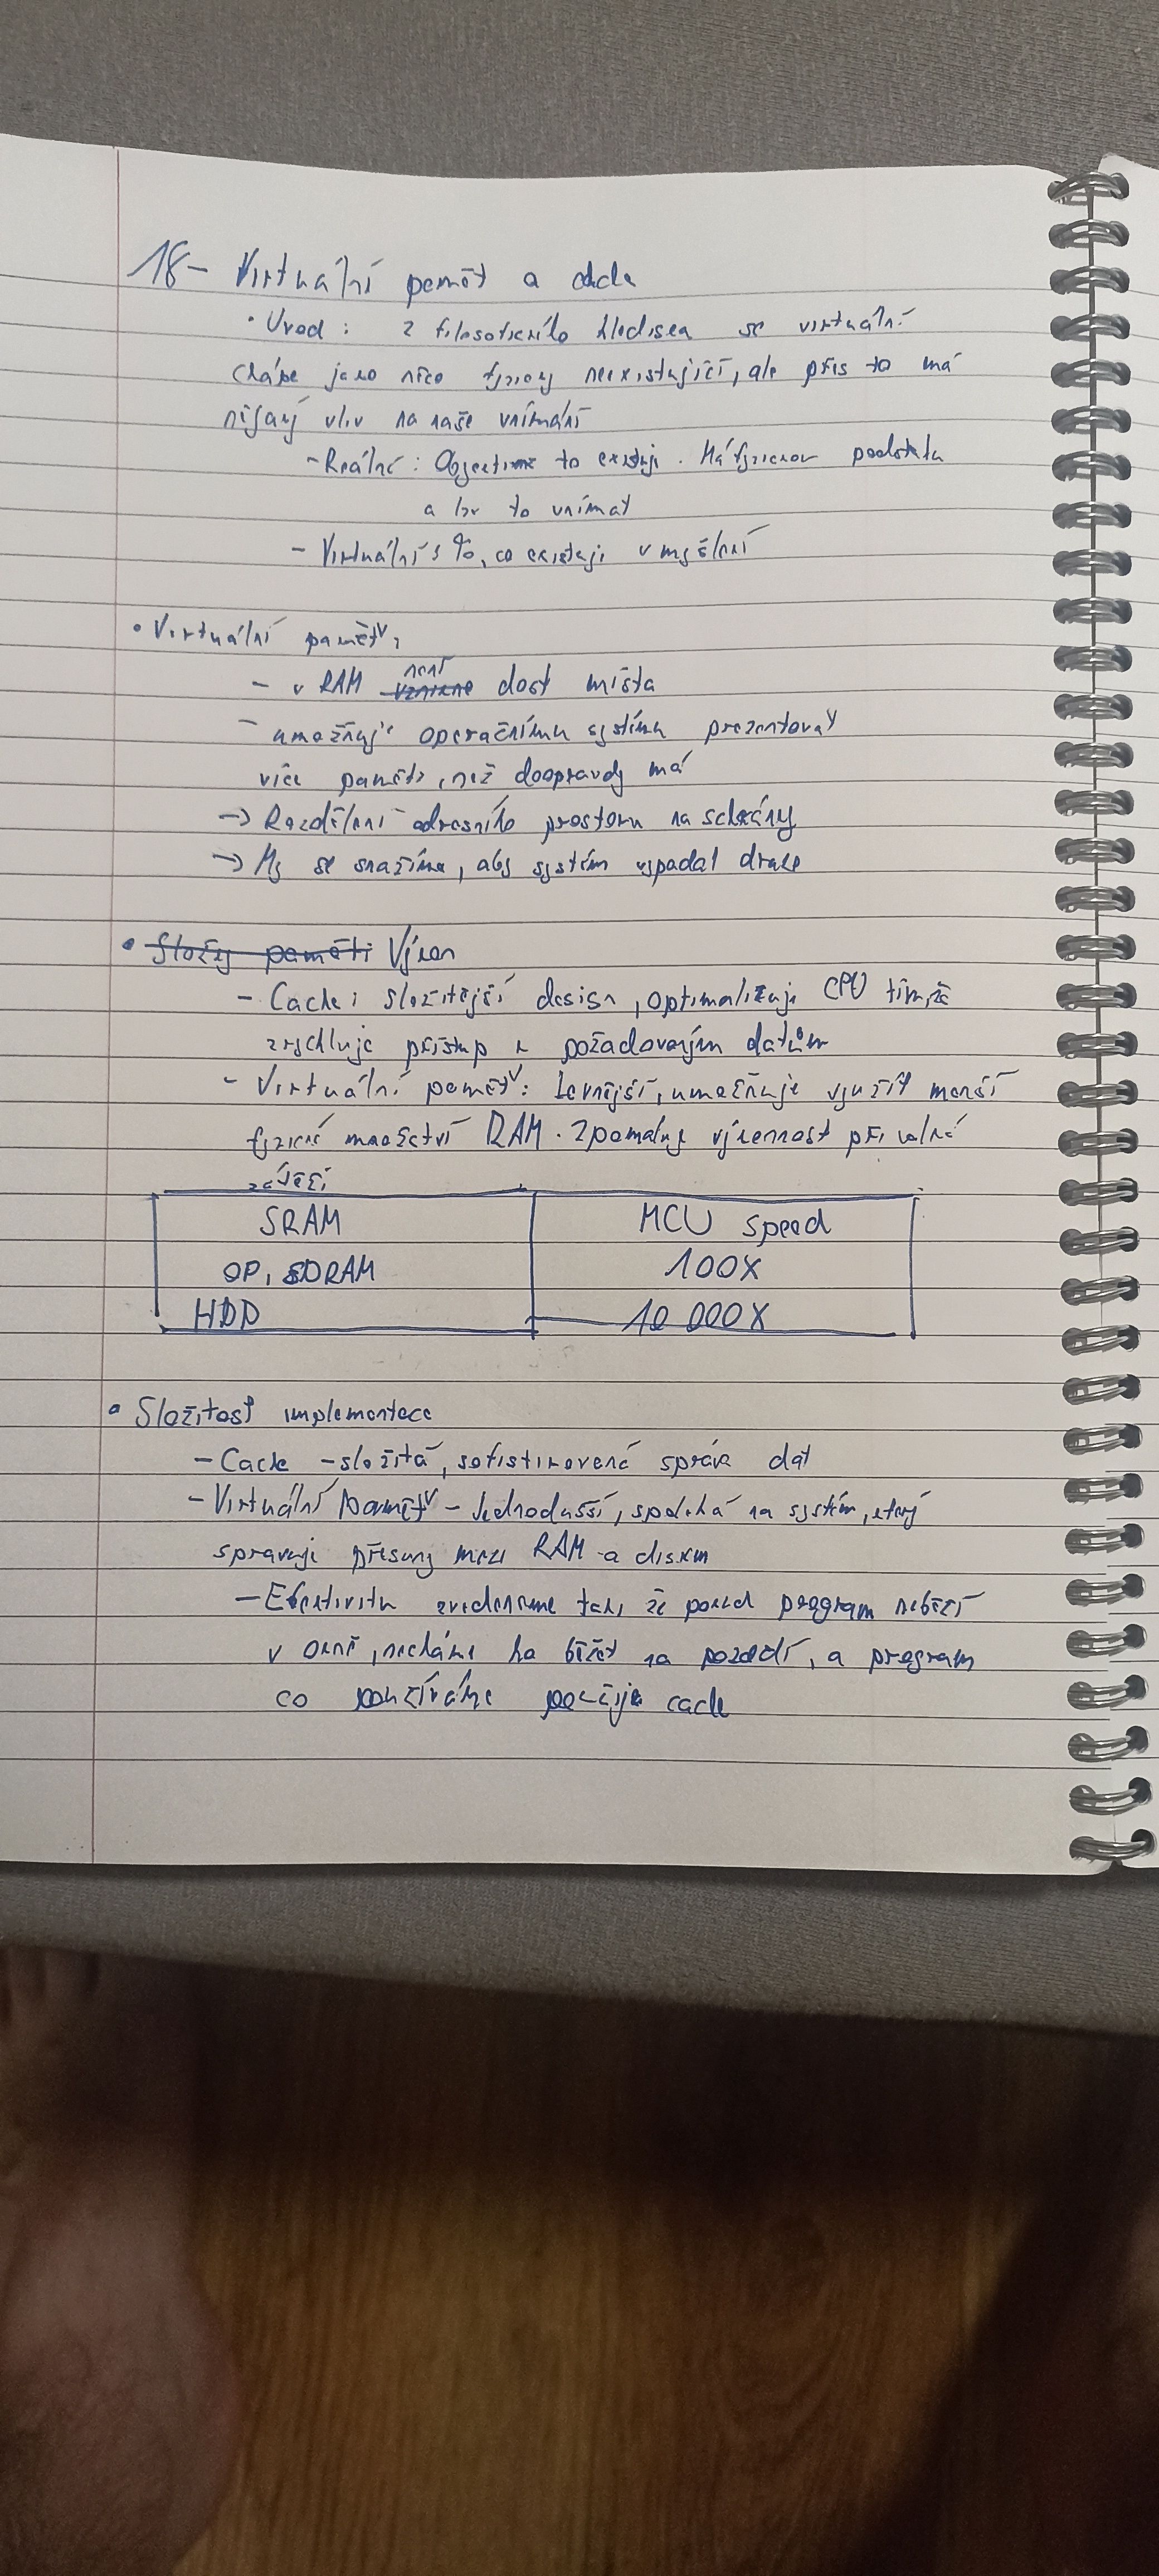 18 - Virtuální paměť a cache
• Úvod: z filosofického hlediska se virtuální
chápe jako něco fyzicky neexistující, ale přes to má
nějaký vliv na naše vnímání
- Reálné: Objektivně to existuje. Má fyzickou podstatu
a lze to vnímat
- Virtuální: To, co existuje v myšlení
• Virtuální paměť:
- v RAM není dost místa
- umožňuje operačnímu systému prezentovat
více paměti, než doopravdy má
-> Rozdělení adresního prostoru na schrány
-> My se snažíme, aby systém vypadal draze
• Složky paměti Výkon
- Cache: složitější design, optimalizuje CPU tím, že
zrychluje přístup k požadovaným datům
- Virtuální paměť: Levnější, umožňuje využít menší
fyzické množství RAM. Zpomaluje výkonnost při velké
zátěži
SRAM MCU speed
OP, SDRAM 100X
HDD 10 000X
• Složitost implementace
- Cache - složitá, sofistikovaná správa dat
- Virtuální paměť - Jednodušší, spoléhá na systém, který
spravuje přesuny mezi RAM a diskem
- Efektivitu zvedneme tak, že pokud program neběží
v okně, necháme ho běžet na pozadí, a program
co používáme používá cache